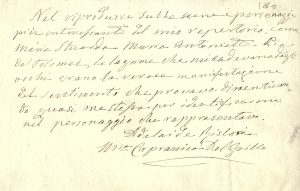 Nel riprodurre sulla scena i personaggi
più interessanti del mio repertorio, come
Maria Stuarda, Maria Antonietta,
le lagrime che mi cadevano dagli
occhi erano la verace manifestazione
del sentimento che provavo dimenticando
quasi me stessa per identificarmi
nel personaggio che rappresentavo.
Adelaide Ristori
Capranica Del Grillo